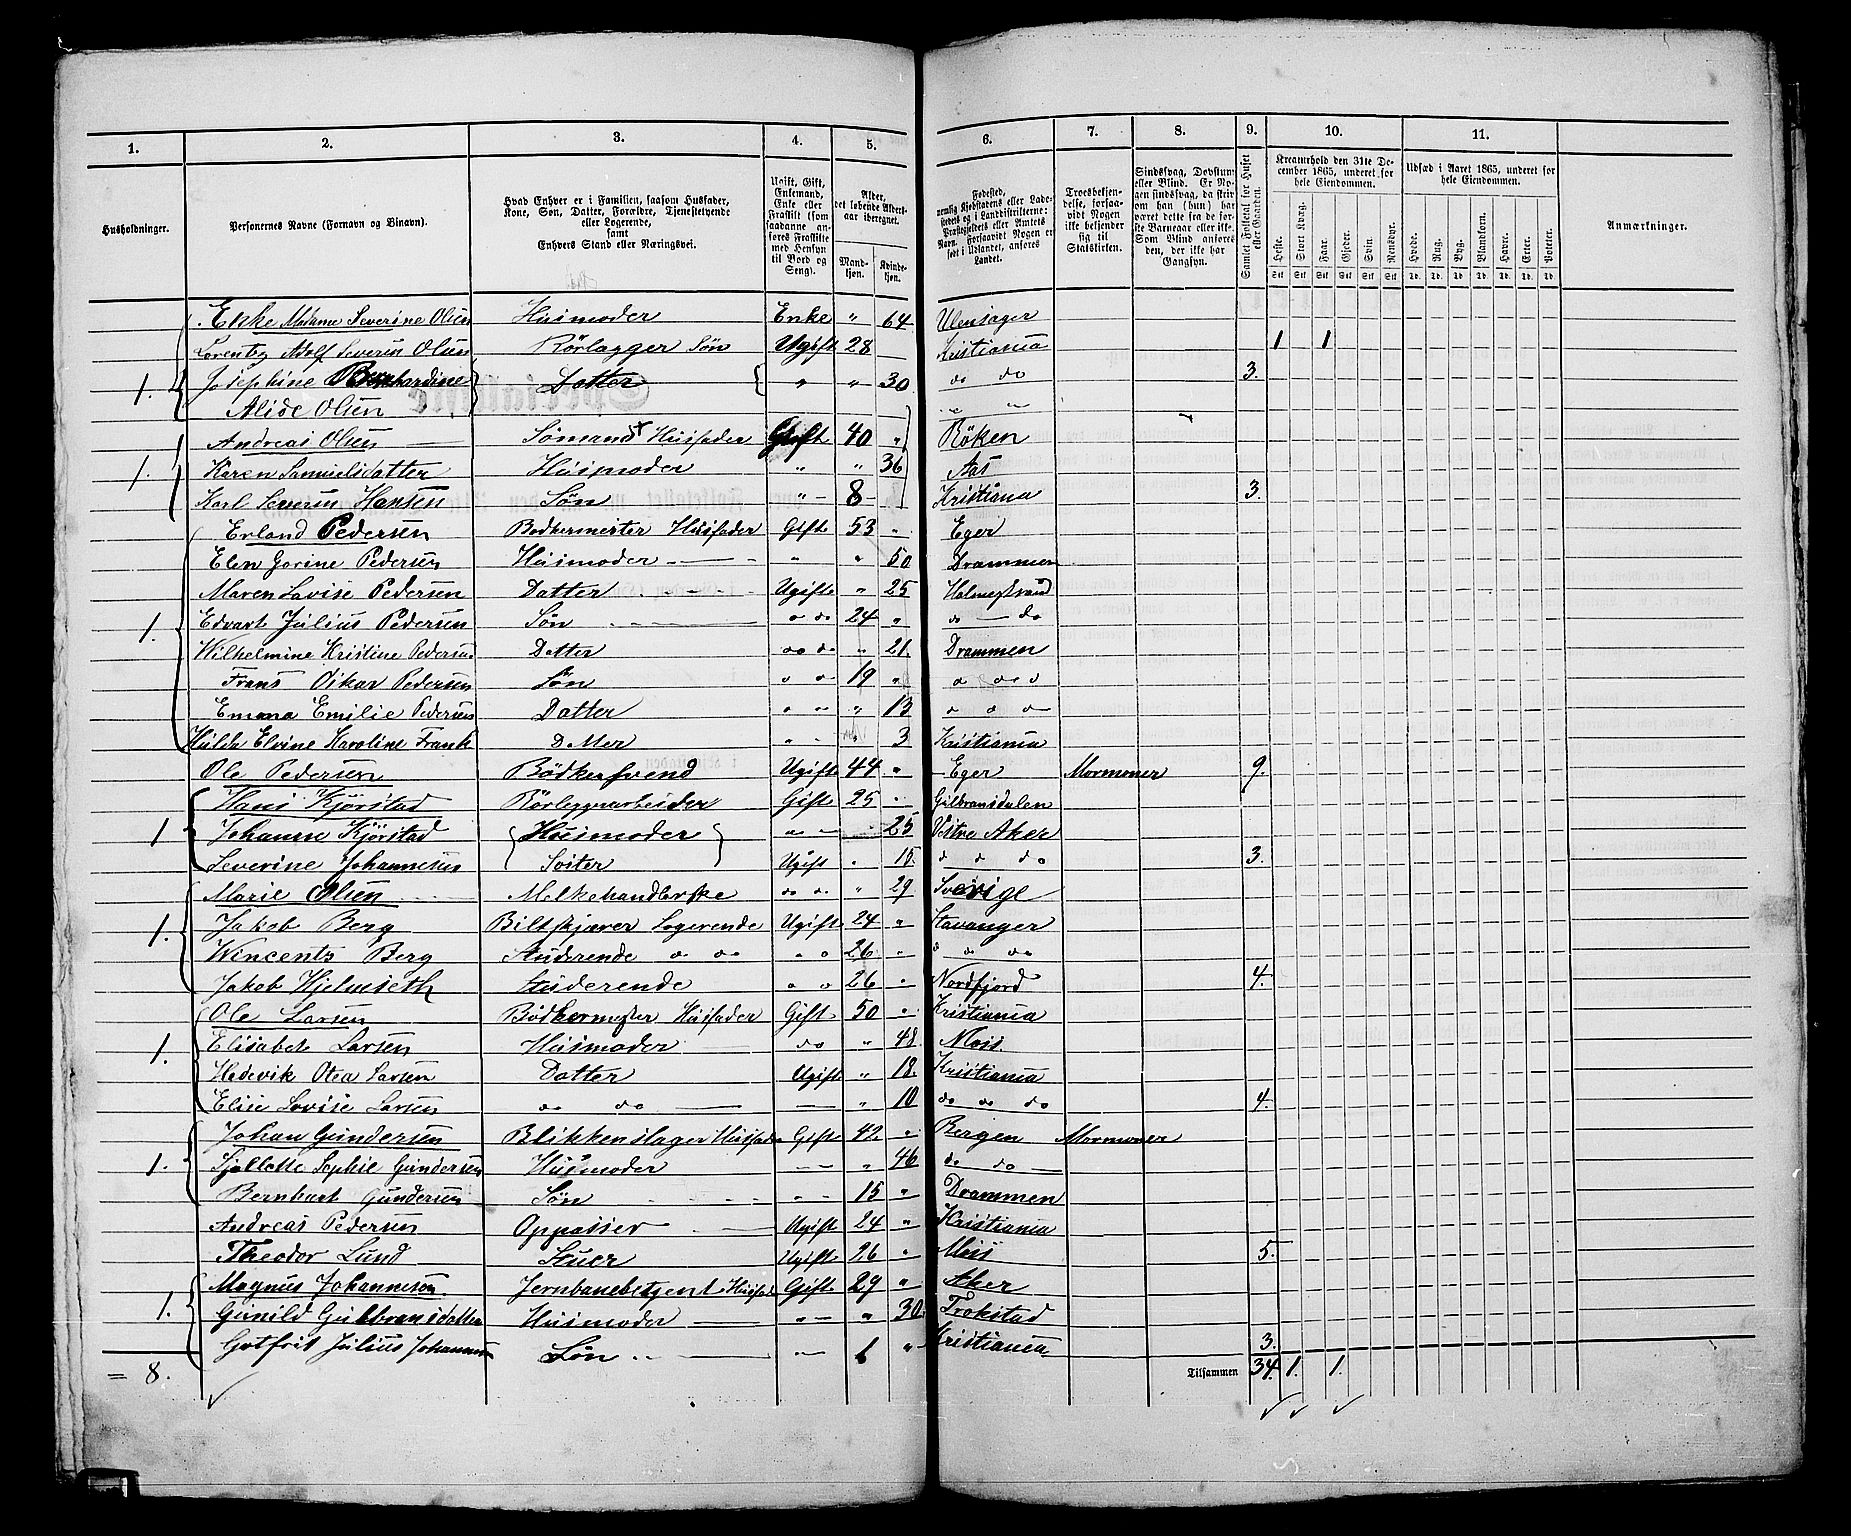 1. 2. 3. 4. 5. 6. 7. 8. 9. 10. 11.
Husholdninger.
Personernes Navne (Fornavn og Binavn).
Hvad Enhver er i Familien, saasom Husfader,
Kone, Søn, Datter, Forældre, Tjenestetyende
eller Logerende,
samt
Enhvers Stand eller Næringsvei.
Ugift, Gift,
Enkemand,
Enke eller
Fraskilt (som
saadanne an-
føres Fraskilte
med Hensyn
til Bord og
Seng).
Alder,
det løbende Alders-
aar iberegnet.
Mand-
kjøn.
Kvinde-
kjøn.
Fødested,
nemlig Kjøbstadens eller Lade-
stedets og i Landdistrikterne:
Præstegjeldets eller Amtets
Navn. Forsaavidt Nogen er
født i Udlandet, anføres
Landet.
Troesbekjen-
delse, forsaa-
vidt Nogen
ikke bekjender
sig til
Statskirken.
Sindssvag, Døvstum
eller Blind. Er No-
gen sindssvag, da skriv
om han (hun) har
været dette fra de før-
ste Barneaar eller ikke.
Som Blind anføres
den, der ikke har
Gangsyn.
Samlet Folketal for Huset
eller Gaarden.
Kreaturhold den 31te De-
cember 1865, underet for
hele Eiendommen.
Heste. Stort Kvæg. Faar. Gjeder. Svin. Rensdyr.
Stk Stk Stk Stk Stk Stk
Udsæd i Aaret 1865, underet for
hele Eiendommen.
Hvede. Rug. Byg. Blandkorn. Havre. Erter. Poteter.
Td. Td. Td. Td. Td. Td. Td.
Anmærkninger.
Enke Madame Severine Olsen Husmoder Enke " 64 Ulensager
Lorentz Adolf Severin Olsen Rörlægger Søn Ugift 28 Kristiania 1 1
1. Josephine Bernhardine Datter " " 30 do do 3.
Alide Olsen " "
Andreas Olsen Sømand Husfader Gift 40 " Röken
1. Karen Samuelsdatter Husmoder " " 36 Aas
Karl Severin Hansen Søn " 8 Kristiania 3.
Erland Pedersen Bødkermester Husfader Gift 53 " Eger
Elen Gorine Pedersen Husmoder " " 50 Drammen
Maren Lovise Pedersen Datter Ugift " 25 Holmestrand
1. Edvart Julius Pedersen Søn do 24 " do do
Wilhelmine Kristine Pedersen Datter do " 21. Drammen
Frans Oskar Pedersen Søn 19 "
Emma Emilie Pedersen Datter " " " 13
Hulda Elvine Karoline Frank Datter " 3 Kristiania
Ole Pedersen Bødkersvend Ugift 44 " Eger Mormoner 9.
Hans Kjørstad Rørleggerarbeider Gift 25 " Gulbransdalen
1 Johanne Kjørstad Husmoder " 25 Vestre Aker
Severine Johannesen Søster Ugift " 15. do 3.
Marie Olsen Melkehandlerske do " 29 Sverige
1. Jakob Berg Biltskjærer Logerende Ugift 24 " Stavanger
Wincents Berg Studerende do 26 " do
Jakob Hjelmseth Studerende 26 " Nordfjord 4.
Ole Larsen Bødkermester Husfader Gift 50 " Kristiania
1. Elisabet Larsen Husmoder do " 48 Moss.
Hedevik Otea Larsen Datter Ugift " 18. Kristiania
Elise Lovise Larsen do do — " 10 do do do 4.
Johan Gundersen Blikkenslager Husfader Gift 42 " Bergen Mormoner
1. Sophie Gundersen Husmoder " 46 do do
Bernhart Gundersen Søn 15 " Drammen
Andreas Pedersen Oppasser Ugift 24 " Kristiania
Theodor Lund Ugift 26 " Moss 5.
Magnus Johannesen Jernbanebetjent Husfader Gift 29 " Aker
1. Gunild Gulbransdatter Husmoder " " 30. Trøkstad
Gotfrit Julius Johannesen Søn 1 " Kristiania 3.
= 8. Tilsammen 34. 1. 1.